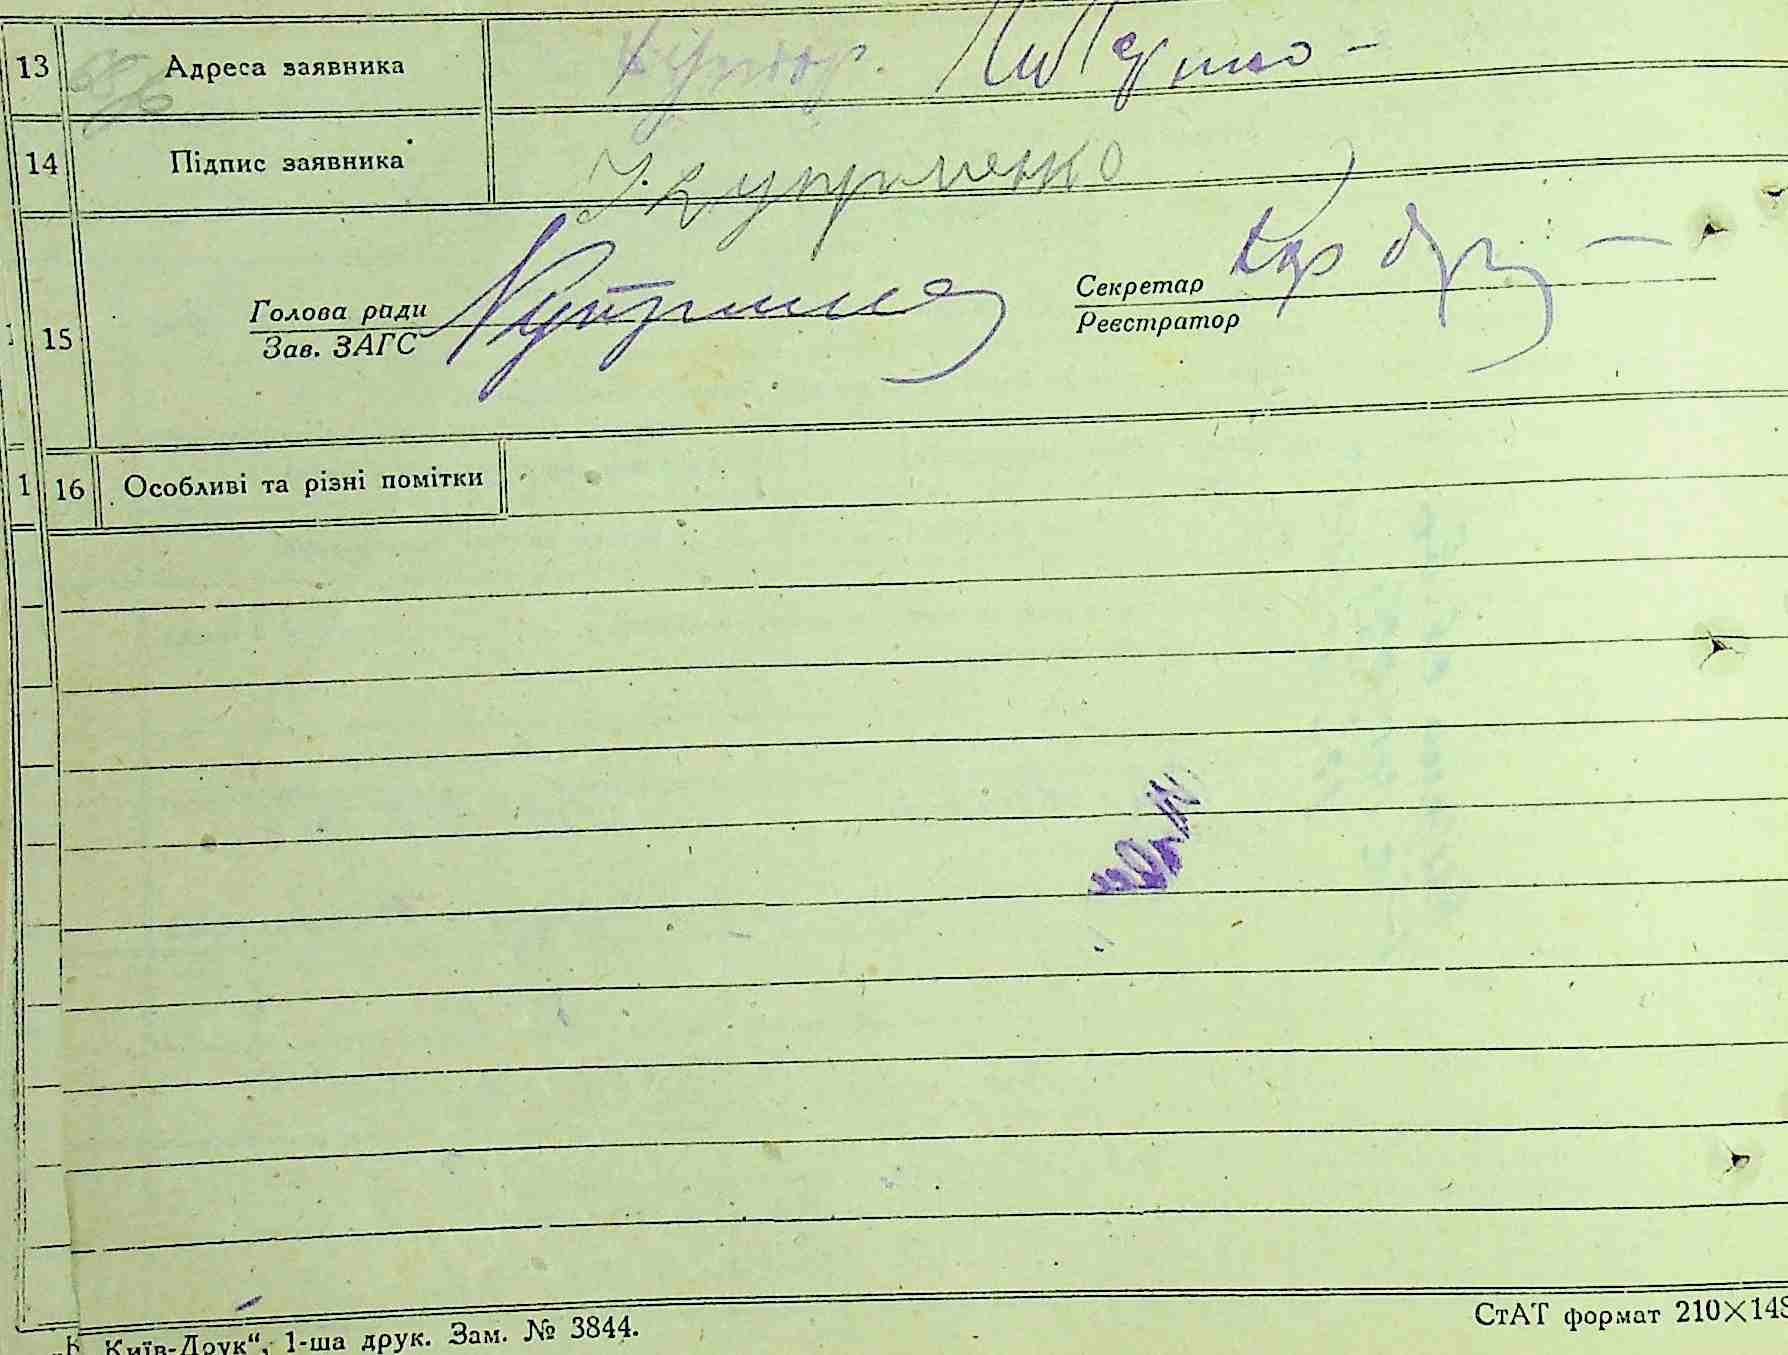 13 Адреса заявника Хутор.
14 Підпис заявника
15 Голова ради Секретар
Зав. ЗАГС Реєстратор
1 16 Особливі та різні помітки
Київ-Друк“, 1-ша друк. Зам. № 3844.
СтАТ формат 210×148